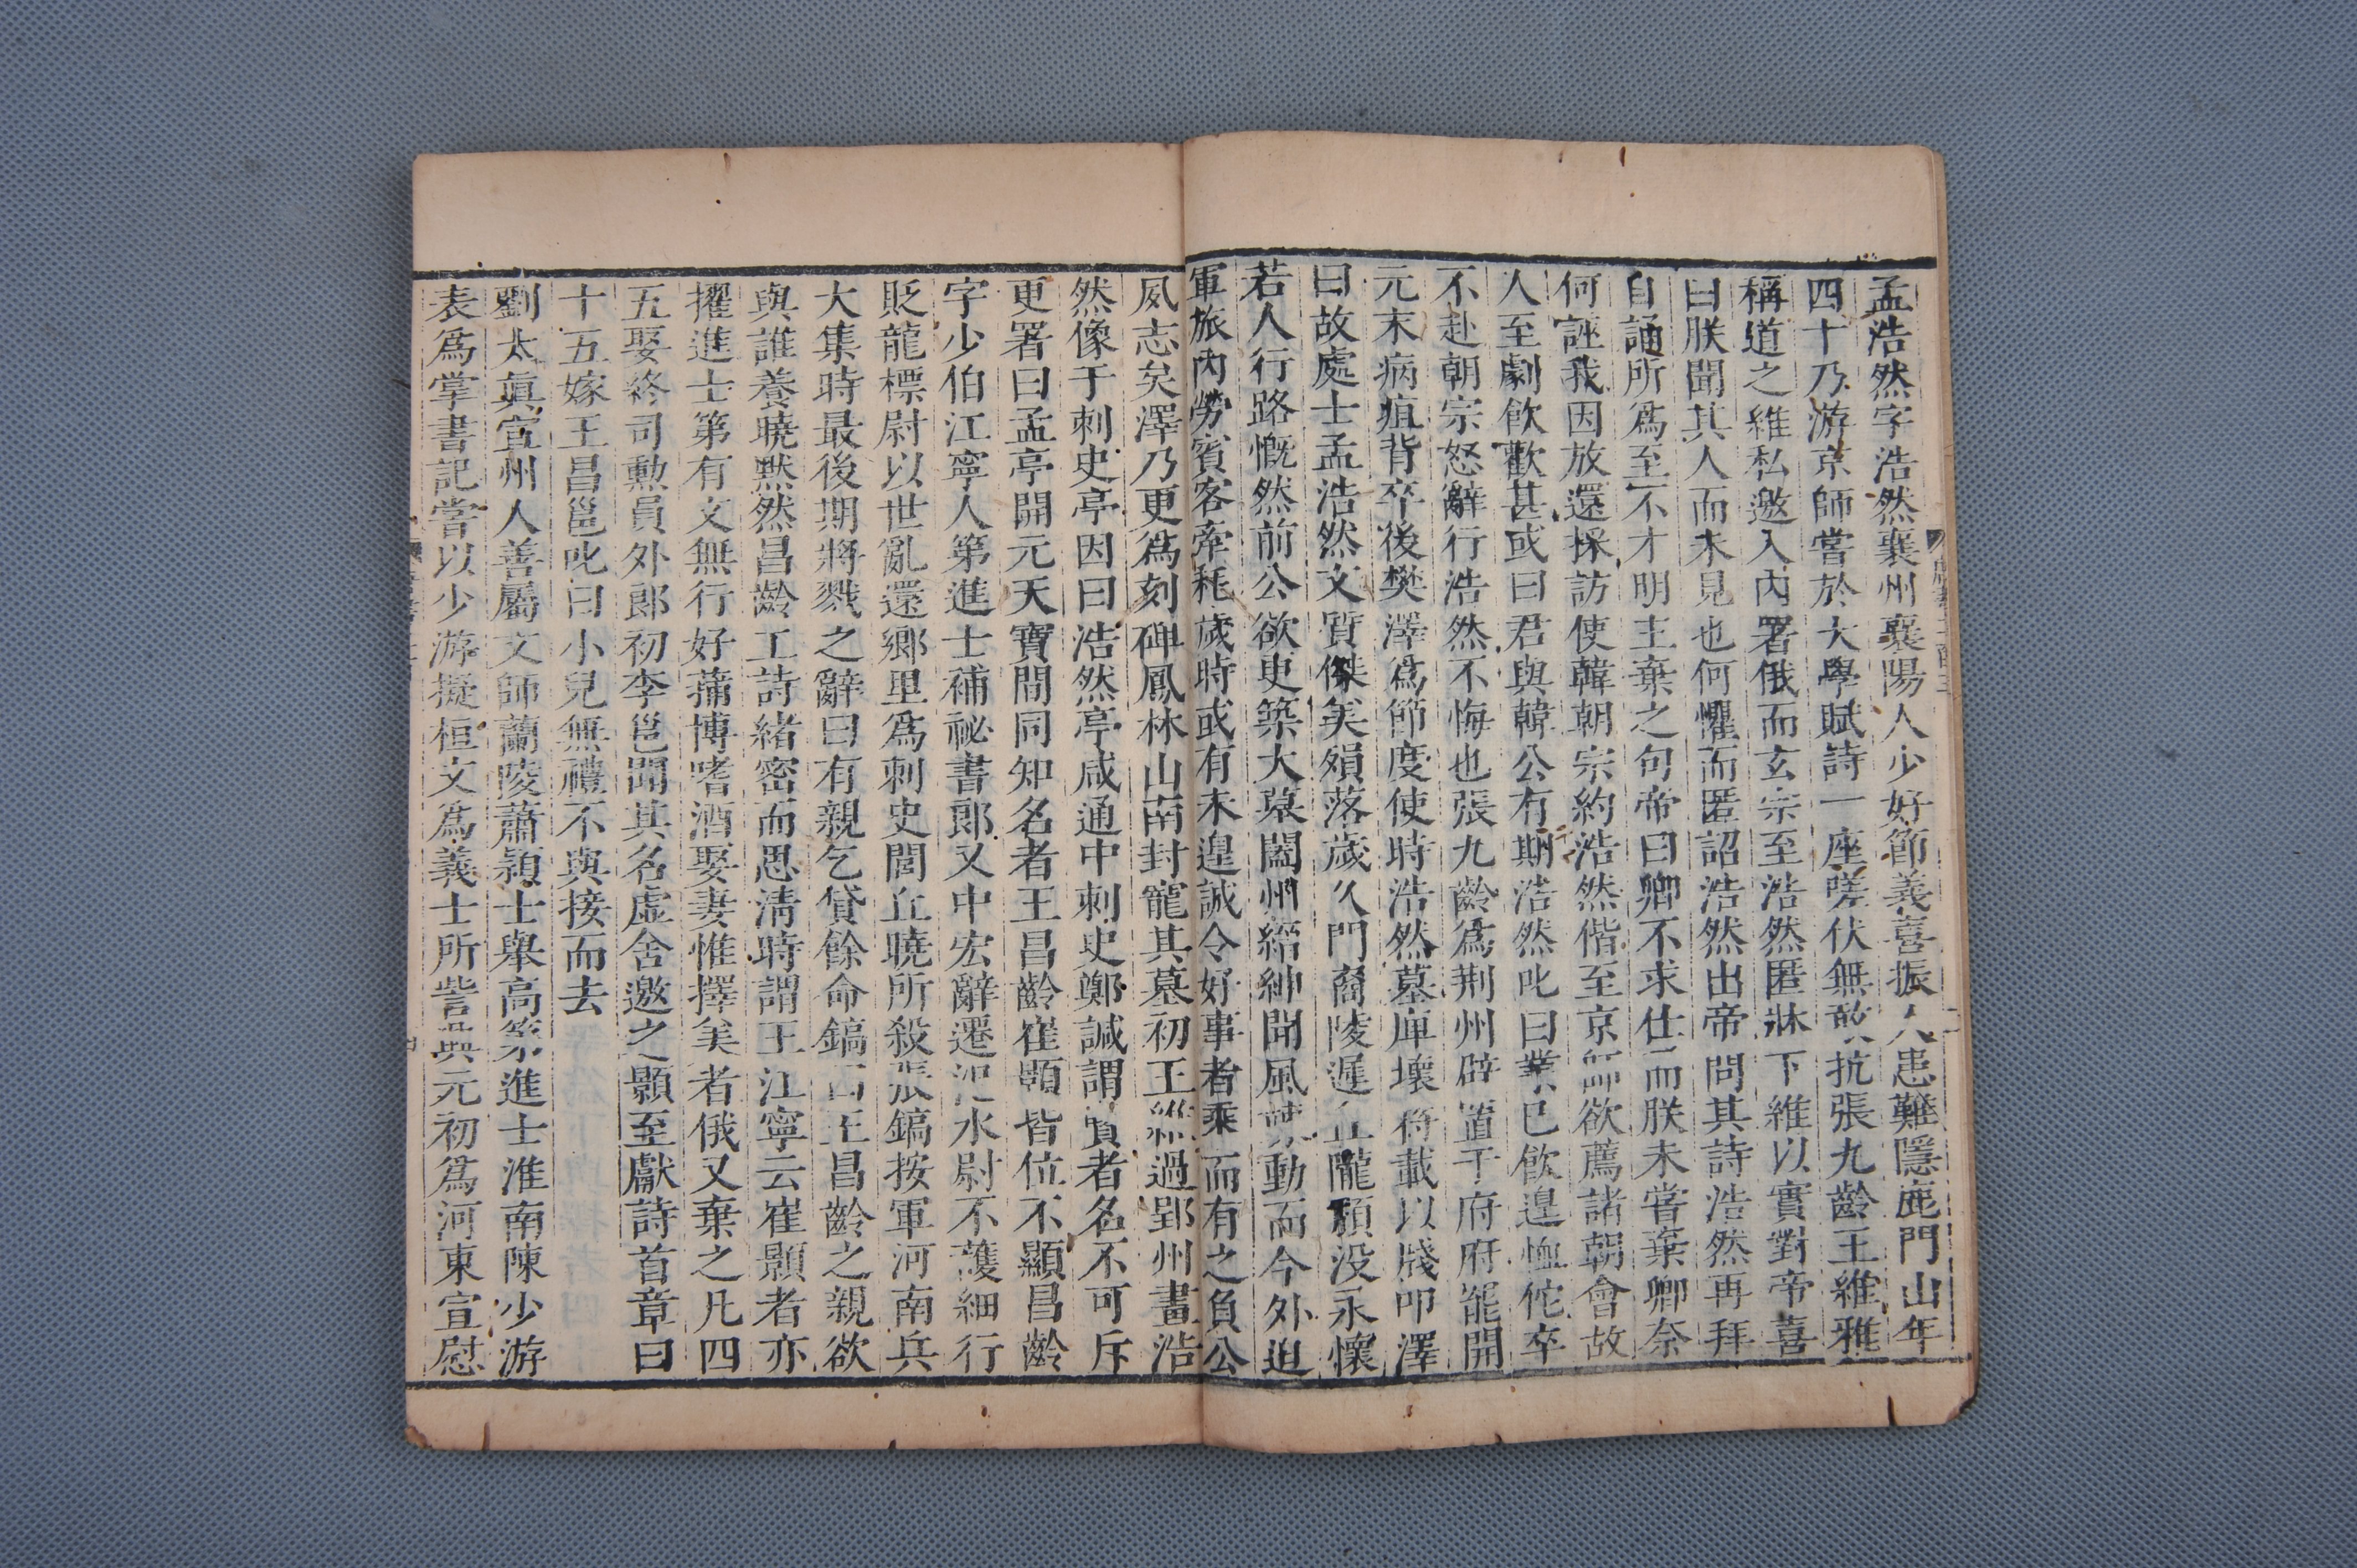 孟浩然字浩然襄州襄陽人少好節義喜振人患難隱鹿門山年
四十乃游京師嘗於大學賦詩一座嗟伏無敢抗張九齡王維雅
稱道之維私邀入內署俄而玄宗至浩然匿牀下維以實對帝喜
曰朕聞其人而未見也何懼而匿詔浩然出帝問其詩浩然再拜
自誦所爲至不才明主棄之句帝曰卿不求仕而朕未嘗棄卿奈
何誣我因放還採訪使韓朝宗約浩然偕至京師欲薦諸朝會故
人至劇飲歡甚或曰君與韓公有期浩然叱曰業已飲遑恤佗卒
不赴朝宗怒辭行浩然不悔也張九齡爲荆州辟置于府府罷開
元末病疽背卒後樊澤爲節度使時浩然墓庳壞符載以牋叩澤
曰故處士孟浩然文質傑美殞落歲久門裔陵遲丘隴頽没永懷
若人行路慨然前公欲更築大墓闔州縉紳聞風竦動而今外迫
軍旅內勞賓客牽耗歲時或有未遑誠令好事者乘而有之負公
夙志矣澤乃更爲刻碑鳳林山南封寵其墓初王維過郢州畫浩
然像于刺史亭因曰浩然亭咸通中刺史鄭諴謂賢者名不可斥
更署曰孟亭開元天寶間同知名者王昌齡崔顥皆位不顯昌齡
字少伯江寧人第進士補祕書郎又中宏辭遷汜水尉不護細行
貶龍標尉以世亂還鄉里爲刺史閭丘曉所殺張鎬按軍河南兵
大集時最後期將戮之辭曰有親乞貸餘命鎬曰王昌齡之親欲
與誰養曉默然昌齡工詩緒密而思清時謂王江寧云崔顥者亦
擢進士第有文無行好蒱博嗜酒娶妻惟擇美者俄又棄之凡四
五娶終司勲員外郎初李邕聞其名虛舍邀之顥至獻詩首章曰
十五嫁王昌邕叱曰小兒無禮不與接而去
劉太眞宣州人善屬文師蘭陵蕭穎士舉高第進士淮南陳少游
表爲掌書記嘗以少游擬桓文爲義士所訾興元初爲河東宣慰